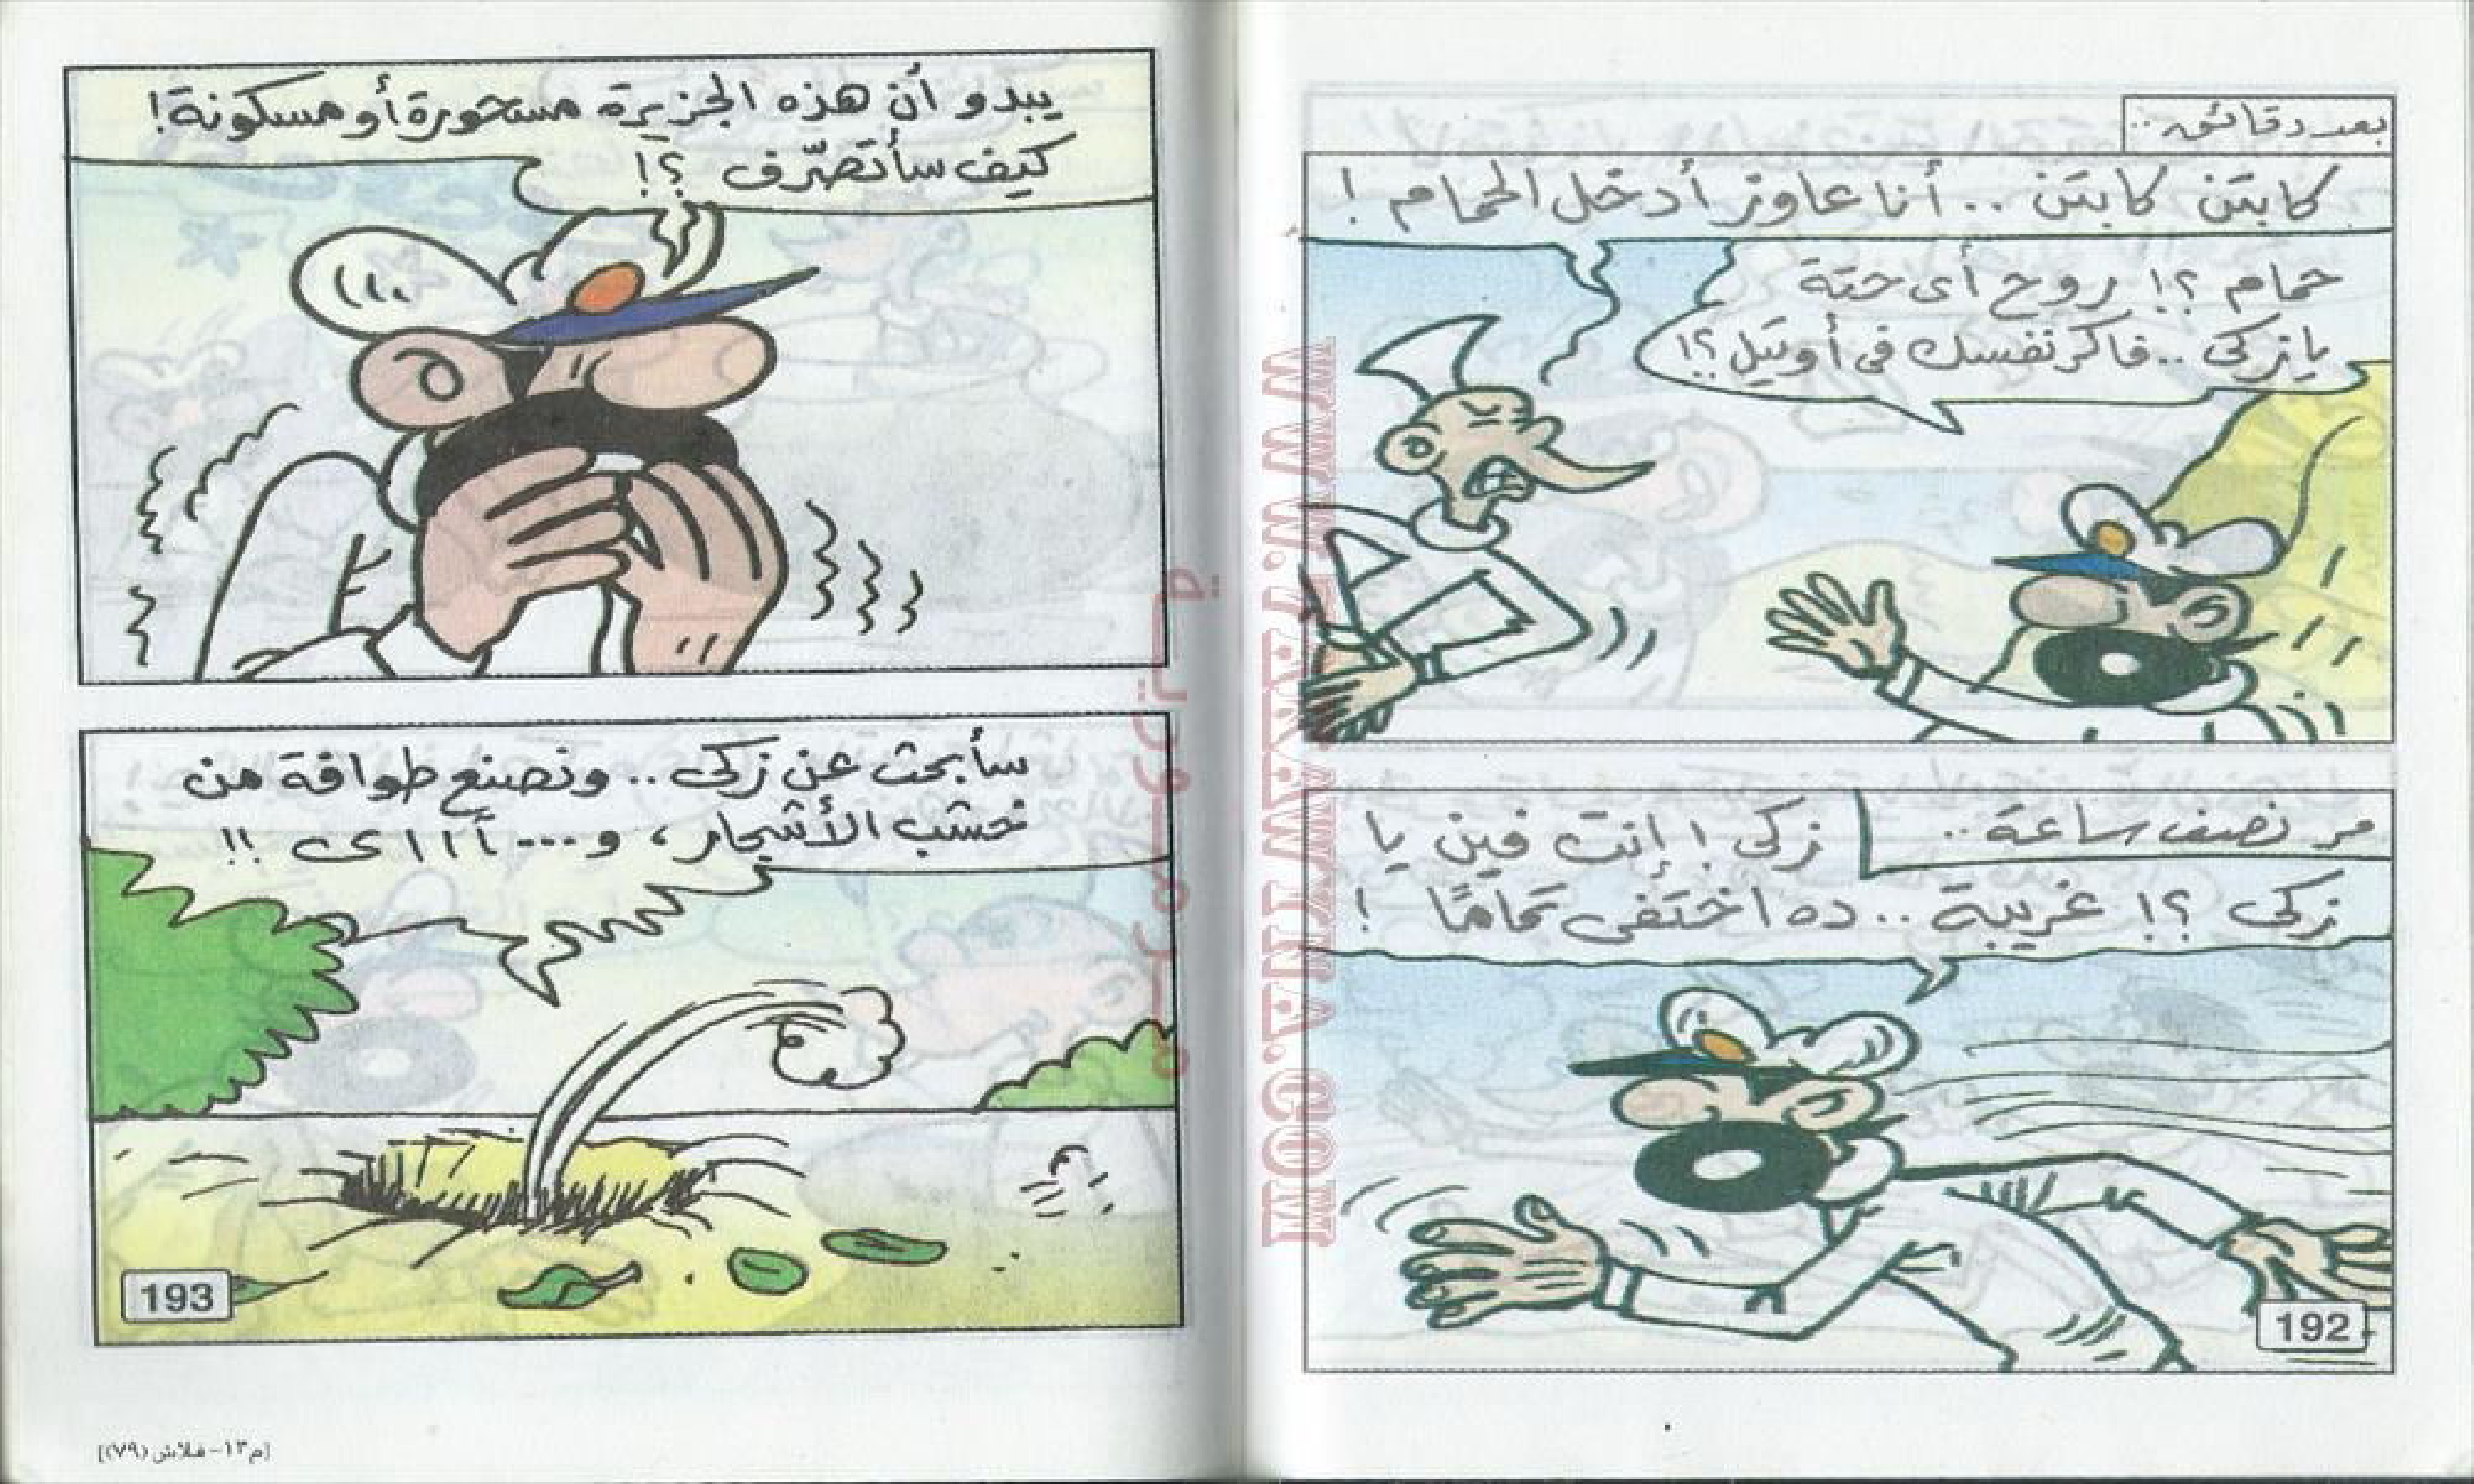 بعد دقائق..
كابتن كابتن .. أنا عاوز أدخل الحمام !
حمام ؟! روح أى حتة
يا زكى .. فاكر نفسك فى أوتيل ؟!
مر نصف ساعة ..
زكى ! إنت فين يا
زكى ؟! غريبة .. ده اختفى تمامًا !
192
يبدو أن هذه الجزيرة مسحورة أو مسكونة !
كيف سأتصرّف ؟!
سأبحث عن زكى .. ونصنع طوافة من
خشب الأشجار ، و... آااى !!
193
[م١٣ - فلاش (٧٩)]
WWW.RAYAHEEN.COM